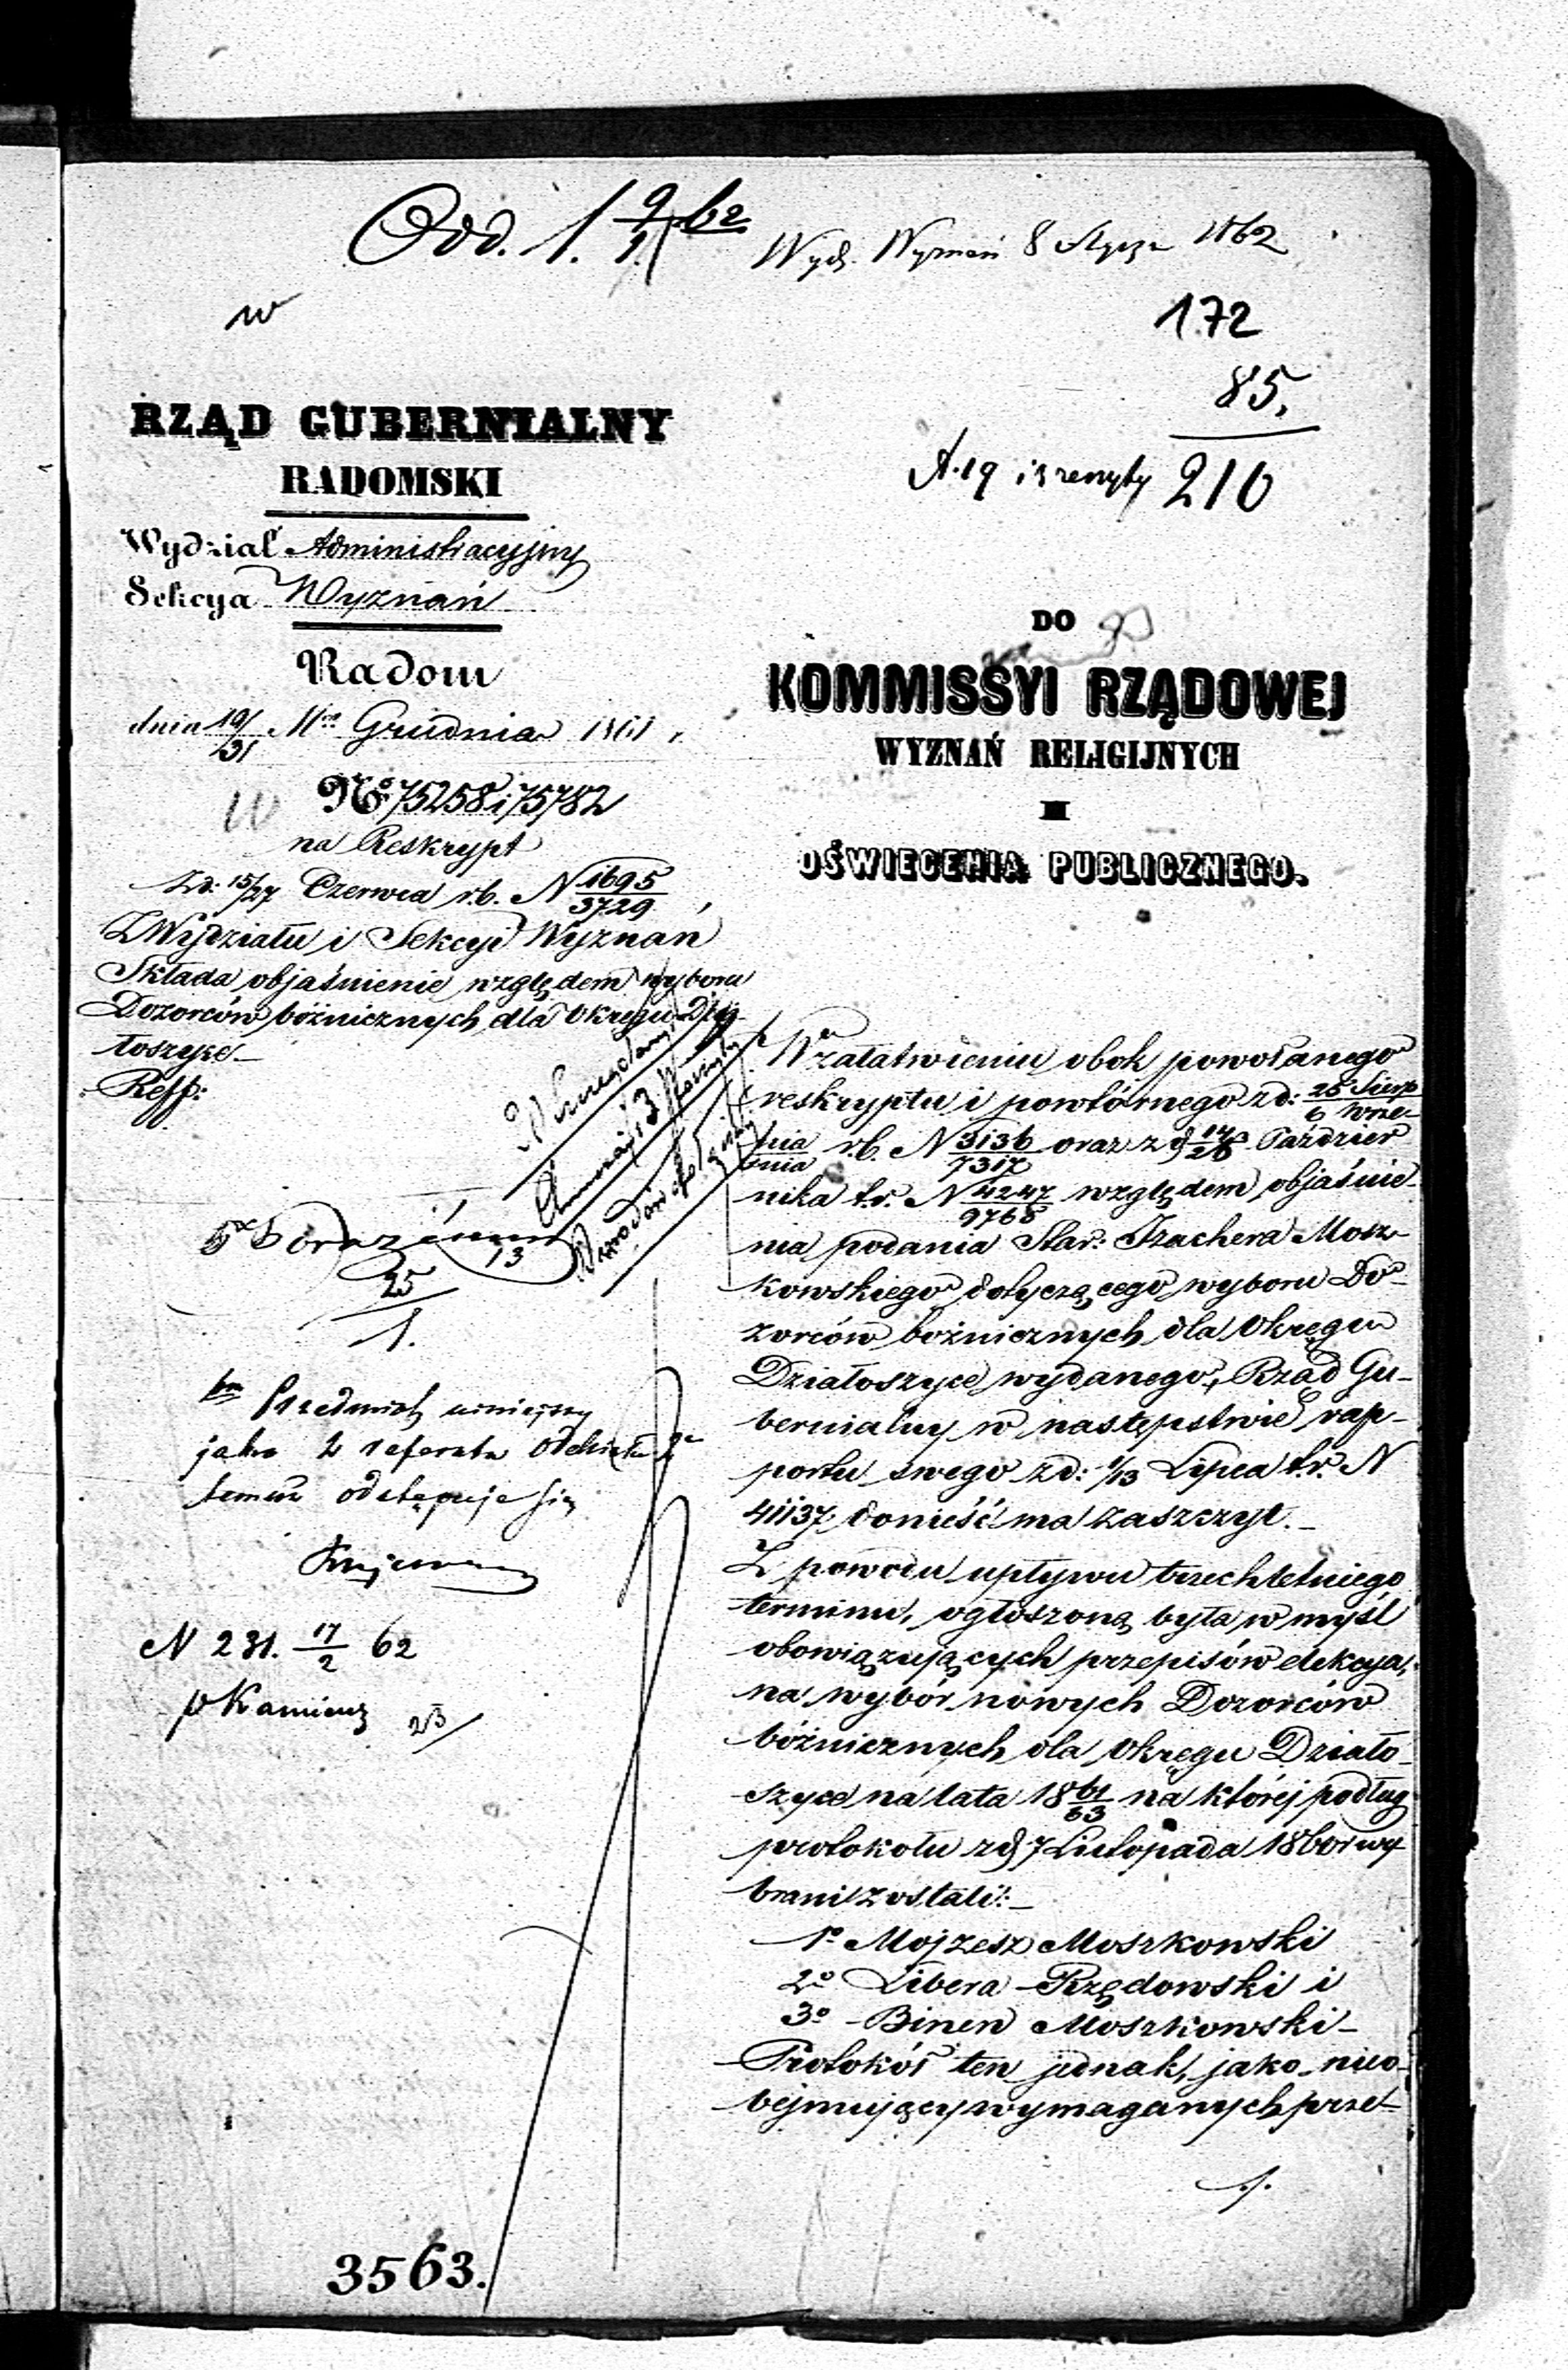 Odd. 1. 9/1. 62
Wydz. Wyznań 8 Stycz. 1862
w
172
85.
210
RZĄD GUBERNIALNY
RADOMSKI
Wydział Administracyjny
Sekcya Wyznań
Radom
dnia 19/31 Mca Grudnia 1861 r.
No 75258 i 75782
na Reskrypt
zd: 15/27 Czerwca r.b. N 1695/3729
Z Wydziału i Sekcyi Wyznań
Składa objaśnienie względem wyboru
Dozorców bóżnicznych dla Okręgu Dzia-
łoszyce
Reff:
13
25
1.
Przedmiot niniejszy
jako z referatu
temuż odstępuje się
N 231. 17/2 62
p Kamieńs
23/
3563.
DO
KOMMISSYI RZĄDOWEJ
WYZNAŃ RELIGIJNYCH
I
OŚWIECENIA PUBLICZNEGO.
W załatwieniu obok powołanego
reskryptu i powtórnego zd: 25 Sierp/6 Wrze-
nia/śnia r.b. N 3136/7317 oraz z d 14/26 Paździer
nika t.r. N 4247/9768 względem objaśnie-
nia podania Star: Izachera Mosz-
kowskiego dotyczącego wyboru Do-
zorców bożnicznych dla Okręgu
Działoszyce wydanego, Rząd Gu-
bernialny w następstwie rap-
portu swego zd: 1/13 Lipca t.r. N
41137 donieść ma zaszczyt.
Z powodu upływu trzechletniego
terminu, ogłoszoną była w myśl
obowiązujących przepisów elekcya,
na wybór nowych Dozorców
bóżnicznych dla Okręgu Działo-
szyce na lata 18 61/63 na której podług
protokołu z d 7 Listopada 1860 r wy
brani zostali:
1o Mojzesz Moszkowski
2o Libera Rzędowski i
3o Binen Moszkowski
Protokół ten jednak, jako nieo-
bejmujący wymaganych przez
./.